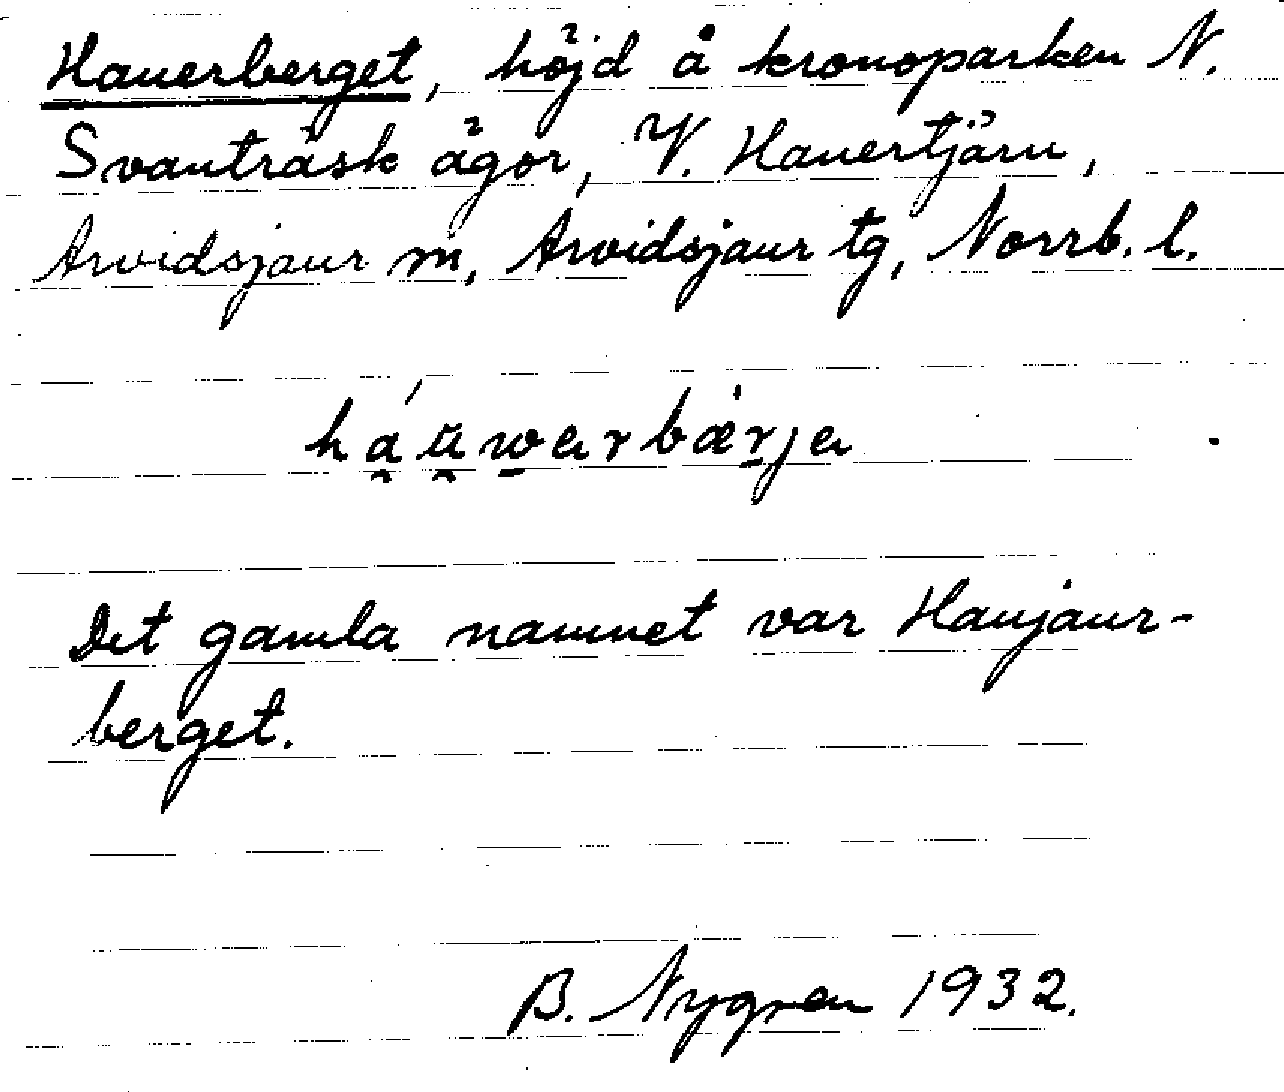 Hauerberget, höjd å kronoparken N.
Svanträsk ägor, V. Hauertjärn,
Arvidsjaur sn, Arvidsjaur tg, Norrb. l.
háu̯warbærja
Det gamla namnet var Haujaur-
berget.
B. Nygren 1932.